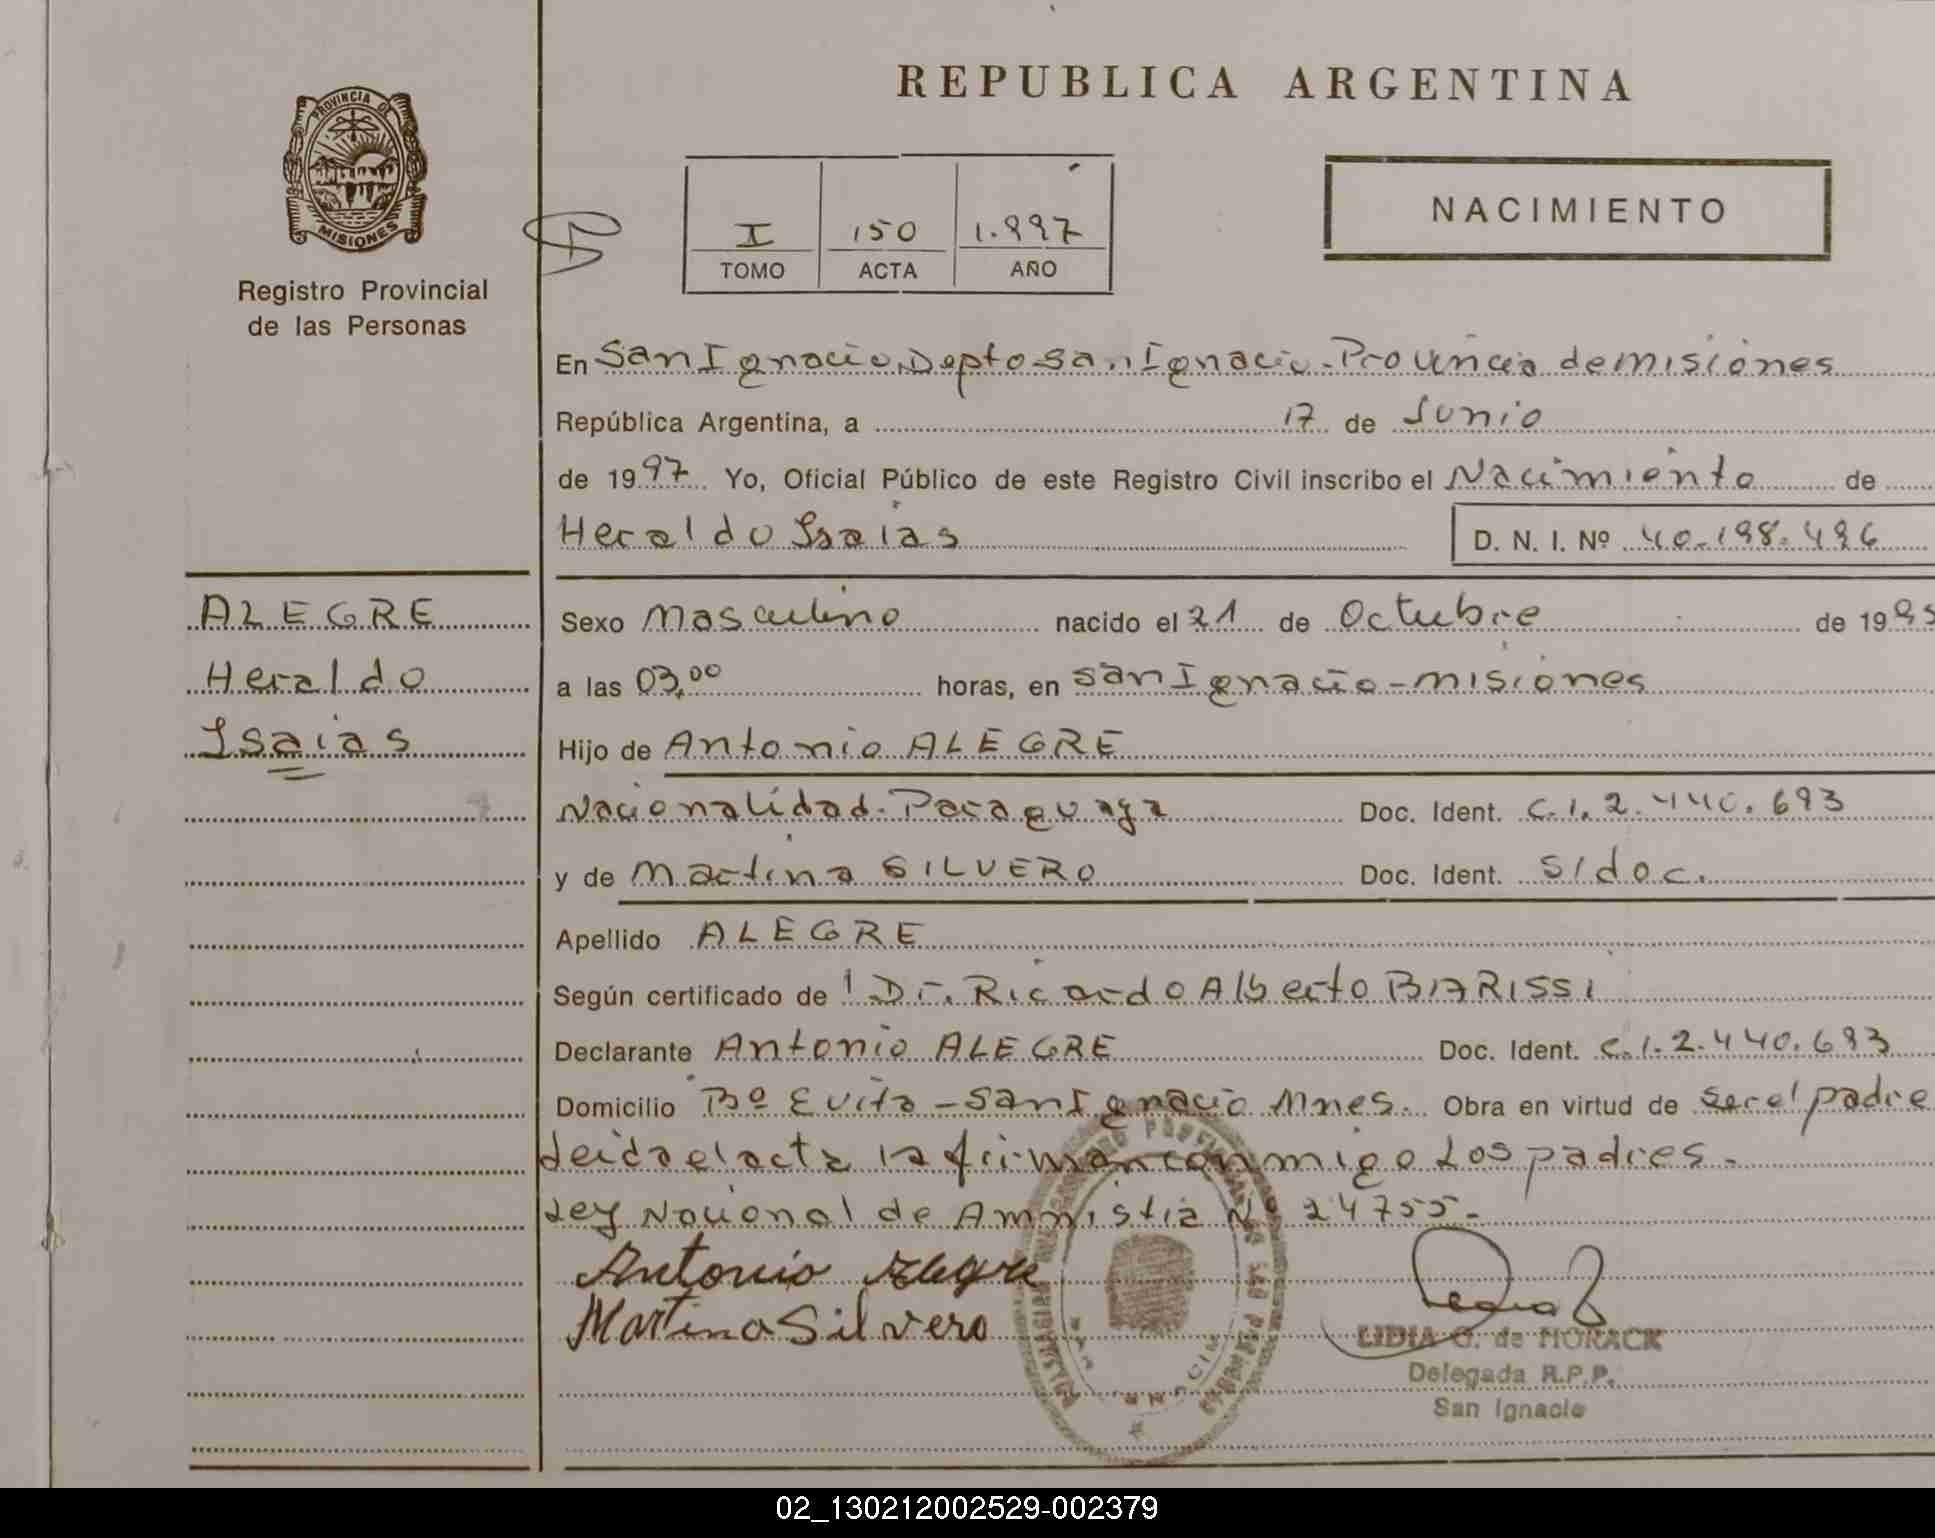 PROVINCIA DE
MISIONES
Registro Provincial
de las Personas
REPUBLICA ARGENTINA
I 150 1.997
TOMO ACTA AÑO
NACIMIENTO
En San Ignacio, Depto San Ignacio - Provincia de misiones
República Argentina, a 17 de Junio
de 1997 Yo, Oficial Público de este Registro Civil inscribo el Nacimiento de
Heraldo Isaias D. N. I. Nº 40.198.496
ALEGRE
Heraldo
Isaias
Sexo Masculino nacido el 21 de Octubre de 199
a las 03,00 horas, en San Ignacio - misiones
Hijo de Antonio ALEGRE
Nacionalidad - Paraguaya Doc. Ident. C.I. 2.440.693
y de Martina SILVERO Doc. Ident. S/doc.
Apellido ALEGRE
Según certificado de Dr. Ricardo Alberto BIARISSI
Declarante Antonio ALEGRE Doc. Ident. C.I. 2.440.693
Domicilio Bº Evita - San Ignacio Mnes. Obra en virtud de ser el padre
Leida el acta la firman conmigo Los padres -
Ley Nacional de Amnistia Nº 24755 -
Antonio Alegre
Martina Silvero
LIDIA G. de HORACK
Delegada R.P.P.
San Ignacio
02_130212002529-002379